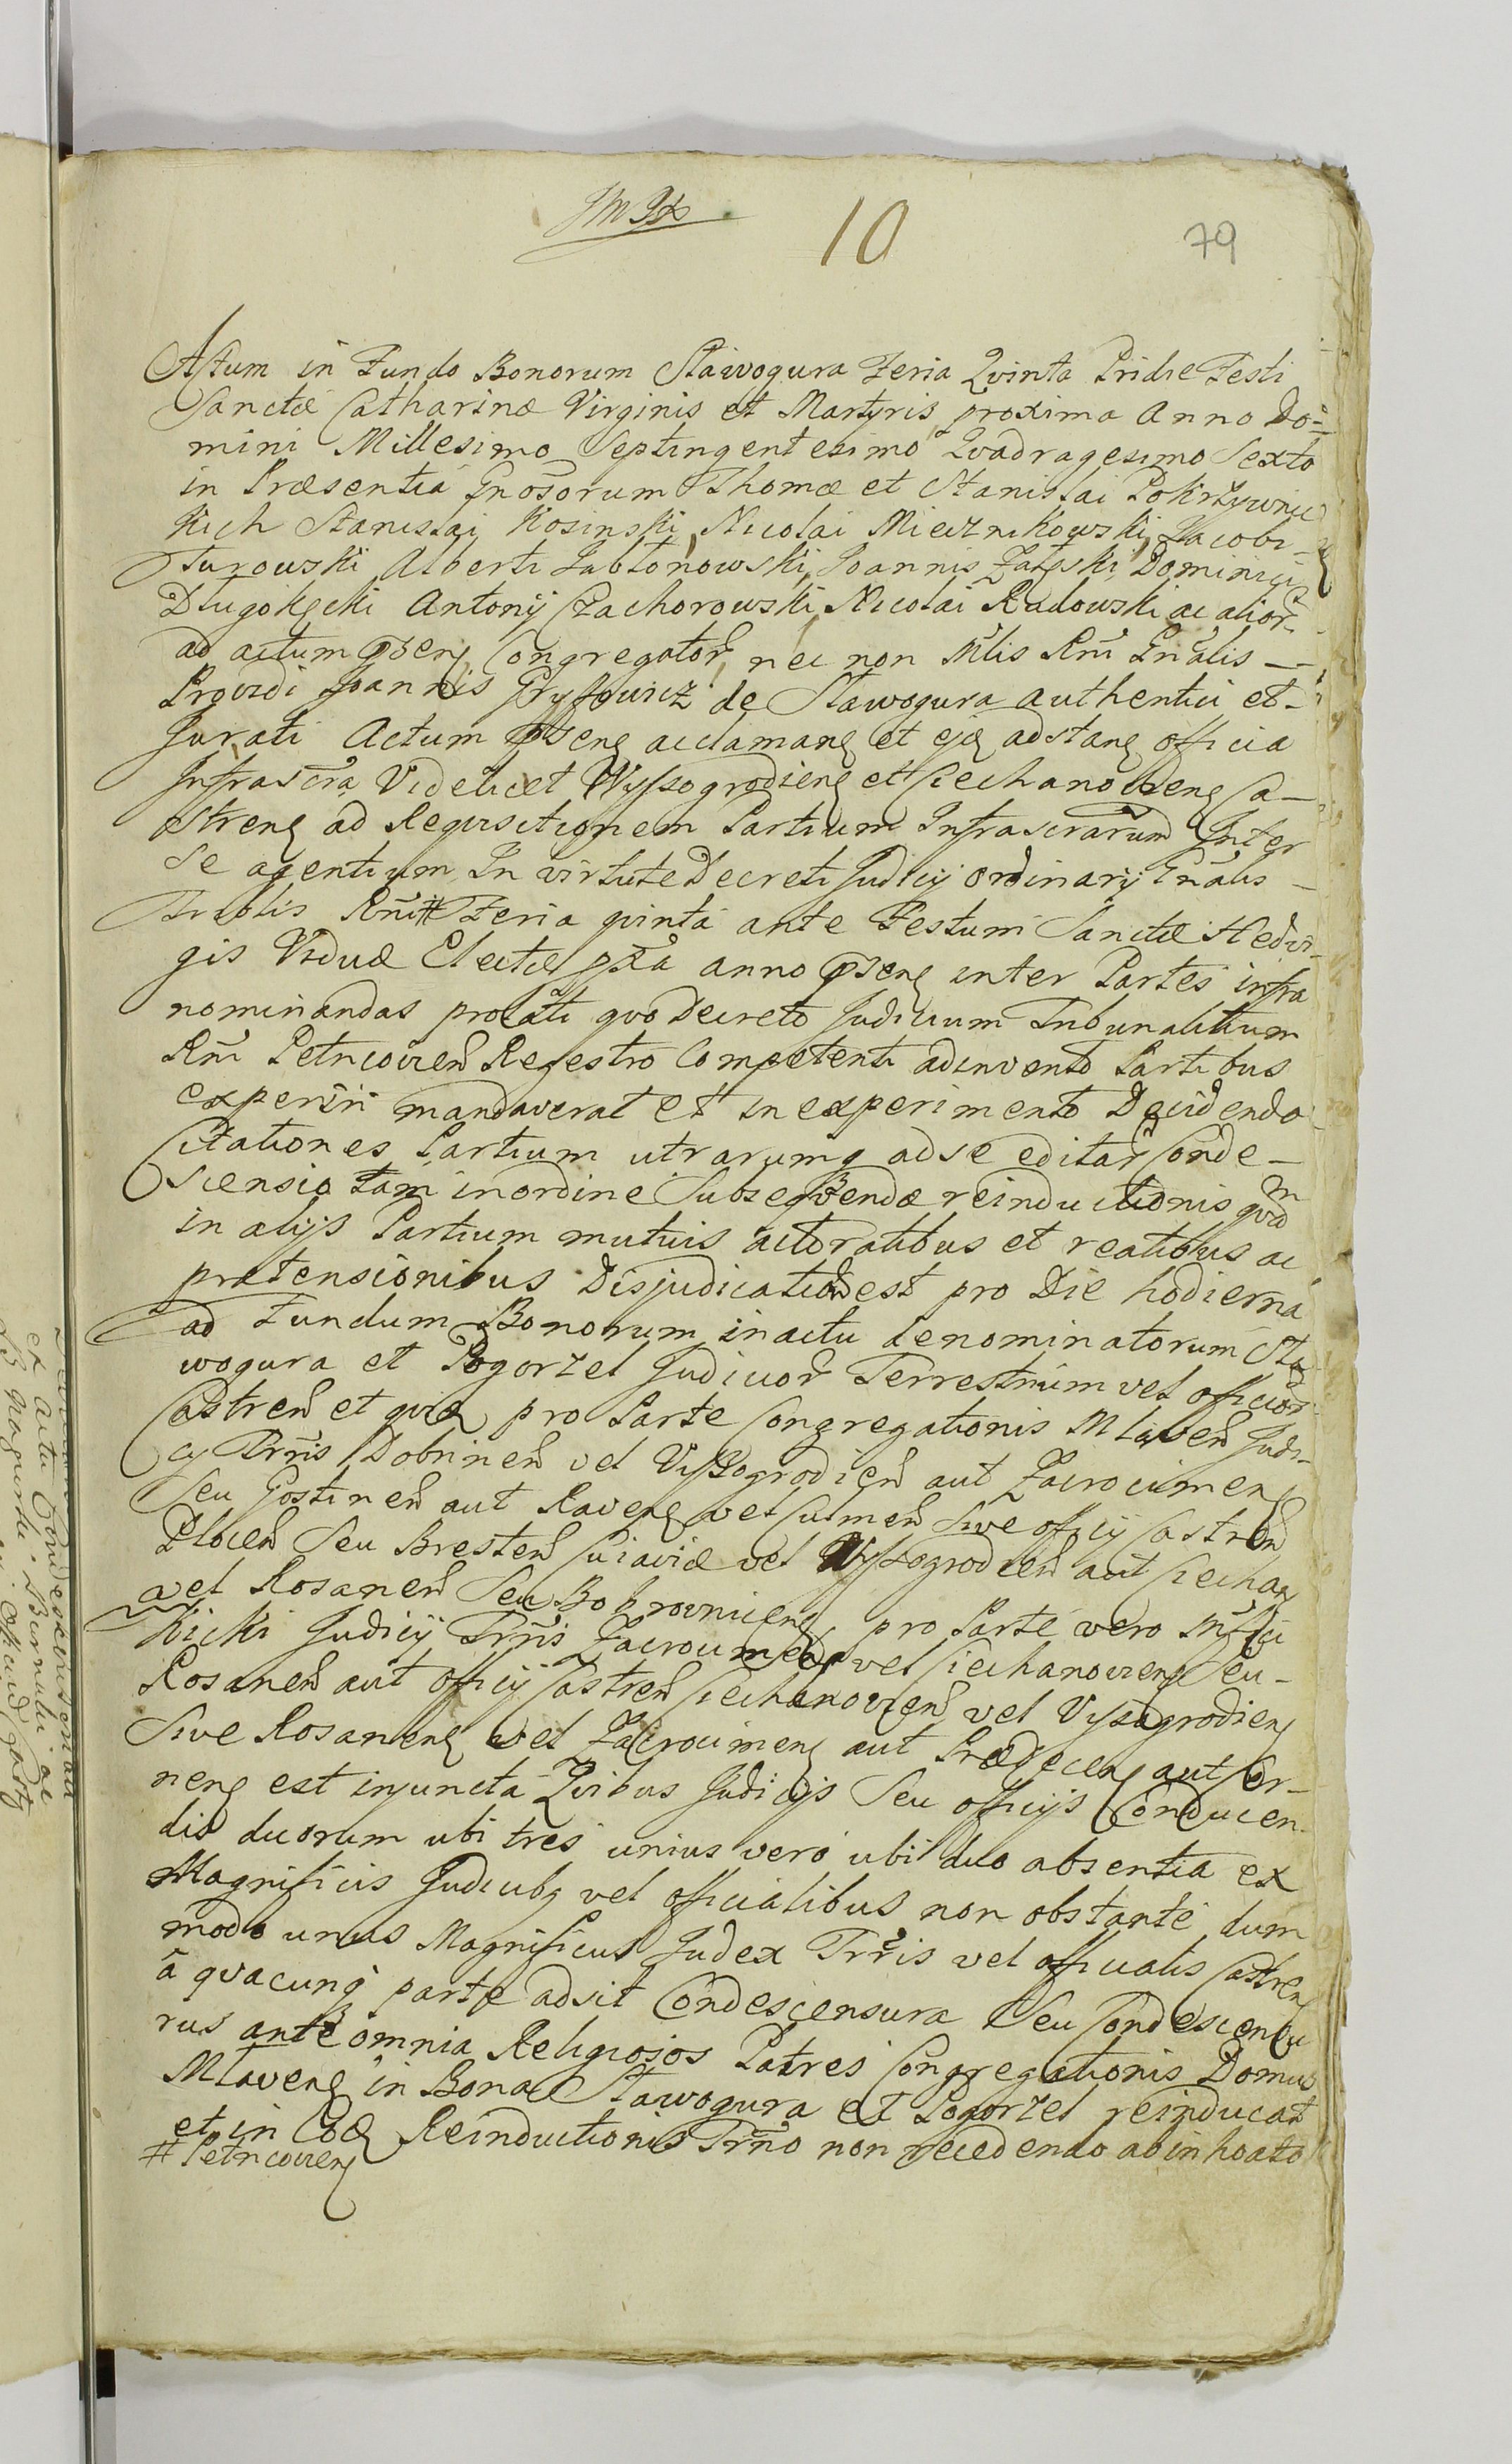 10
79
Actum in Fundo Bonorum Stawogura Feria Qvinta Pridie Festi
Sanctæ Catharinæ Virginis et Martyris proxima Anno Do=
mini Millesimo Septingentesimo Qvadragesimo Sexto
in Præsentia Gnosorum Thomæ et Stanislai Pokrzywnic
kich Stanislai Kosinski, Nicolai Miecznikowski, Jacobi
Turowski Alberti Jabłonowski, Joannis Załęski Dominici
Długokęcki Antonij Czachorowski, Nicolai Radowski ac alior
ad actum pseng Congregator, nec non Mlis Rni Gnalis
Providi Joannis Gryfowicz de Stawogura authentici et
Jurati Actum pseng acclamang et ejg adstang officia
Infrascra Videlicet Wyssogrodieng et Ciechanovieng Ca-
streng ad Reqvisitionem Partium Infrascrarum Inter
Se agentium In virtute Decreti Judicij ordinarij Gnalis
Trablis Rni # Feria qvinta ante Festum Sanctæ Hedvi-
gis Viduæ Electæ pxa anno pseng inter Partes infra
nominandas prolati qvo Decreto Judicium Tribunalitium
Rni Petricovien Regestro Competenti adinvento Partibus
experiri mandaverat et in experimento Decidendo
Citationes Partium utrarumq ad se editar Conde-
scensio tam in ordine Subseqvendæ reinductionis qvam
in alijs Partium mutuis actoratibus et reatibus ac
prætensionibus Disjudicatio est pro Die hodierna
ad Fundum Bonorum in actu denominatorum Sta
wogura et Pogorzel Judicior Terrestrium vel officior
Castren et qvid pro Parte Congregationis Mlaven Judi-
cij Trris Dobrinen vel Vyssogrodien aut Zacrocimeng
Seu Gostinen aut Raveng vel Culmen Sive officij Castren
Plocen Seu Bresten Cuiaviæ vel Wyssogrodien aut Ciechang
vel Rosanen Seu Bobrowniceng, pro Parte vero
Kicki Judicij Trris Zacrocimeng vel Ciechanovieng Seu-
Rosanen aut officij Castren Ciechanovien vel Vyssogrodieng
Sive Rosaneng vel Zacrocimeng aut Prædeceng aut Cer-
neng est injuncta Qvibus Judicijs Seu officijs Conducen-
dis duorum ubi tres unius vero ubi duo absentia ex
Magnificis Judicibg vel officialibus non obstante dum
modo unus Magnificus Judex Trris vel officialis Castreng
à qvacunq parte adsit Condescensura Seu Condescensu
rus ante omnia Religiosos Patres Congregationis Domus
Mlaveng in Bona Stawogura et Pogorzel reinducat
et in Eod Reinductionis Trno non recedendo ab inhoato
# Petricovieng